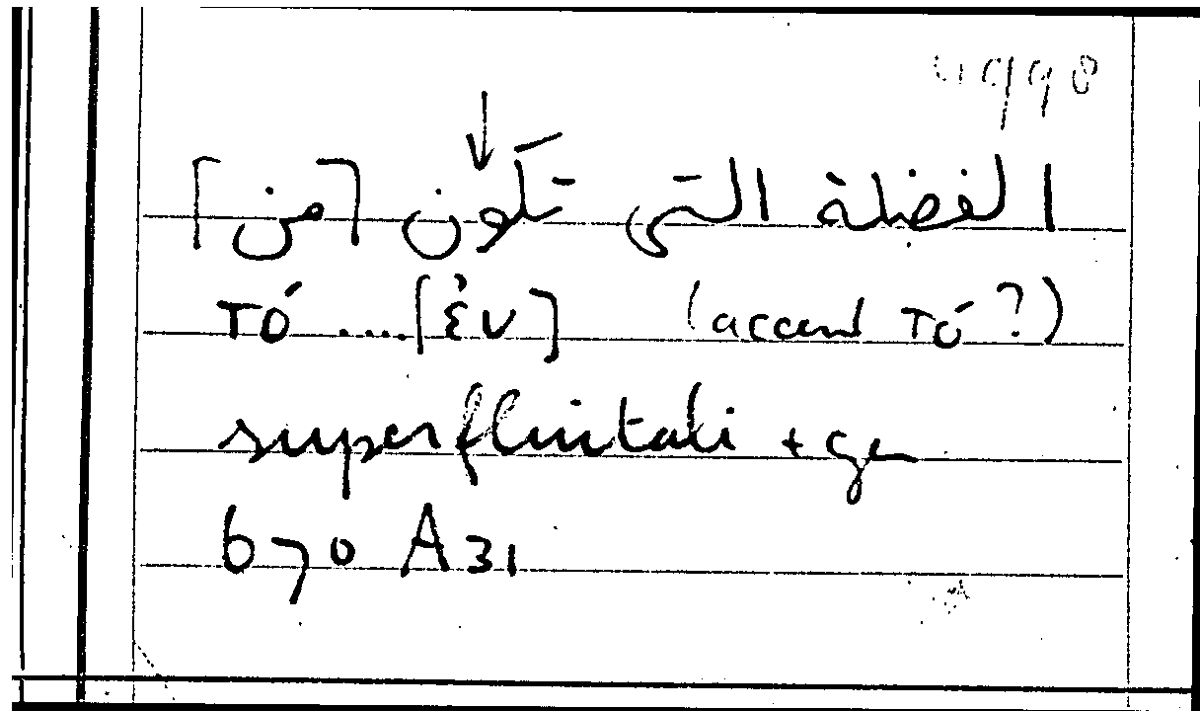 الفضلة التى تكون [من]
τό .... [ἐν] (accent τό ?)
superfluitati + gen
670 A 31